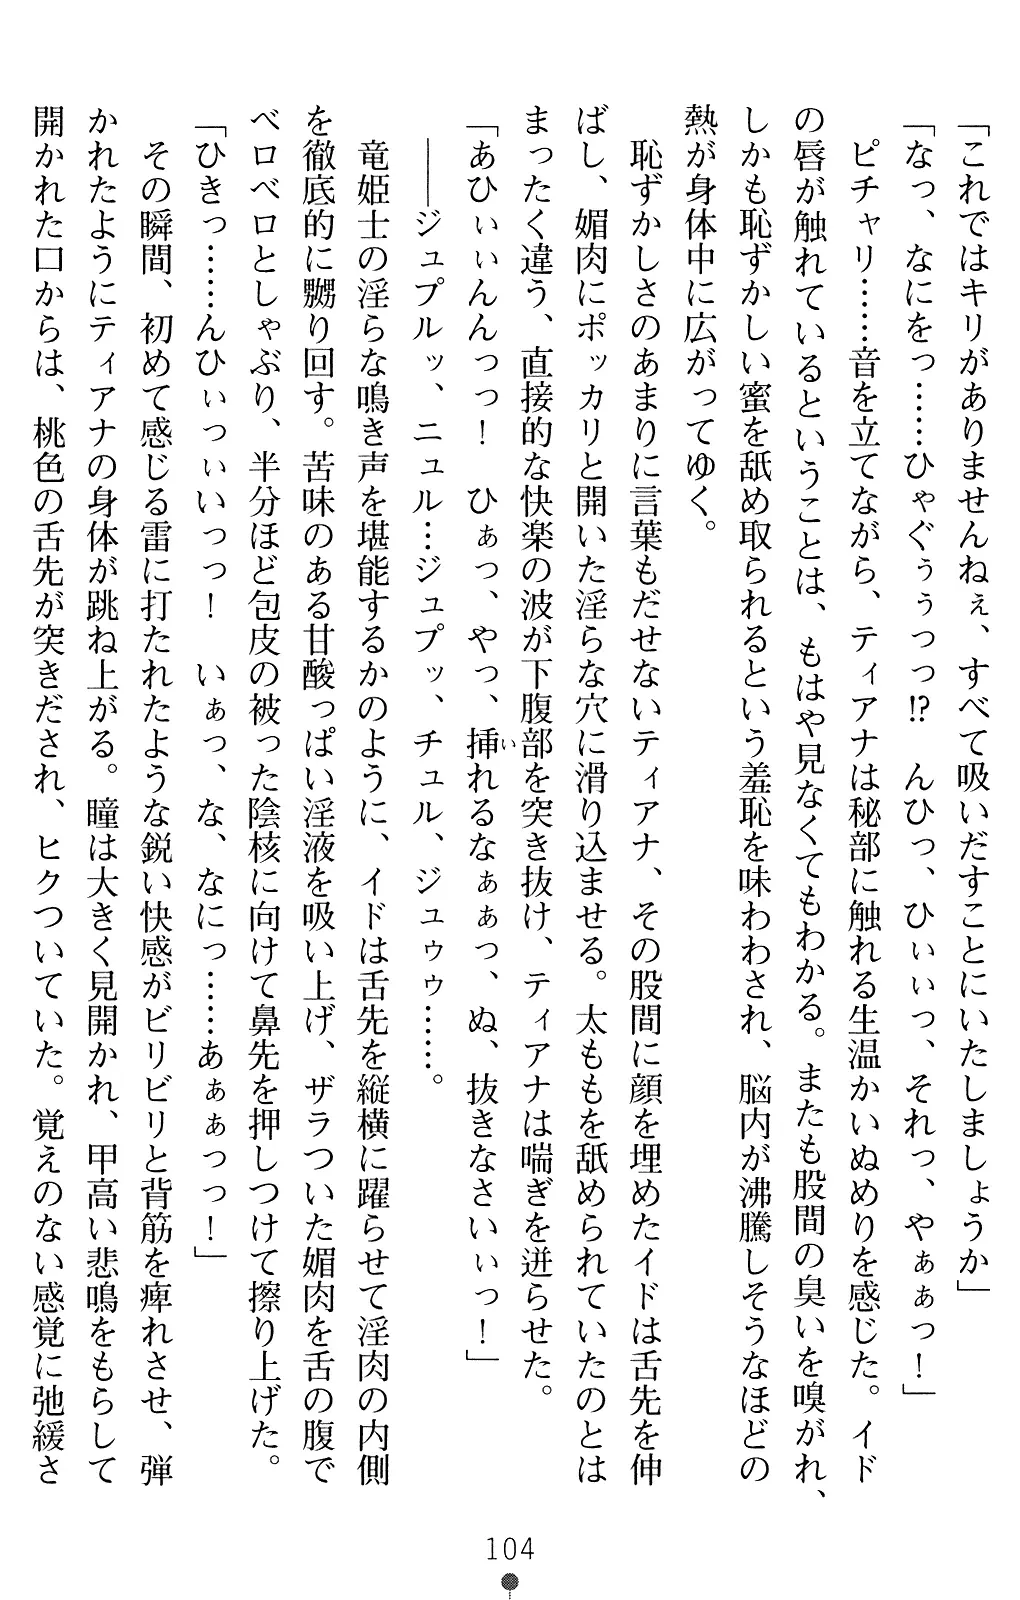 「これではキリがありませんねぇ、すべて吸いだすことにいたしましょうか」
「なっ、なにをっ……ひゃぐぅぅっっ!?　んひっ、ひぃぃっ、それっ、やぁぁっ！」
ピチャリ……音を立てながら、ティアナは秘部に触れる生温かいぬめりを感じた。イド
の唇が触れているということは、もはや見なくてもわかる。またも股間の臭いを嗅がれ、
しかも恥ずかしい蜜を舐め取られるという羞恥を味わわされ、脳内が沸騰しそうなほどの
熱が身体中に広がってゆく。
恥ずかしさのあまりに言葉もだせないティアナ、その股間に顔を埋めたイドは舌先を伸
ばし、媚肉にポッカリと開いた淫らな穴に滑り込ませる。太ももを舐められていたのとは
まったく違う、直接的な快楽の波が下腹部を突き抜け、ティアナは喘ぎを迸らせた。
「あひぃぃんんっっ！　ひぁっ、やっ、挿れるなぁぁっ、ぬ、抜きなさいぃっ！」
――ジュプルッ、ニュル…ジュプッ、チュル、ジュゥゥ……。
竜姫士の淫らな鳴き声を堪能するかのように、イドは舌先を縦横に躍らせて淫肉の内側
を徹底的に嬲り回す。苦味のある甘酸っぱい淫液を吸い上げ、ザラついた媚肉を舌の腹で
ベロベロとしゃぶり、半分ほど包皮の被った陰核に向けて鼻先を押しつけて擦り上げた。
「ひきっ……んひぃっぃいっっ！　いぁっ、な、なにっ……あぁぁっっ！」
その瞬間、初めて感じる雷に打たれたような鋭い快感がビリビリと背筋を痺れさせ、弾
かれたようにティアナの身体が跳ね上がる。瞳は大きく見開かれ、甲高い悲鳴をもらして
開かれた口からは、桃色の舌先が突きだされ、ヒクついていた。覚えのない感覚に弛緩さ
104